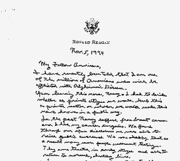 RONALD REAGAN
Nov. 5, 1994
My Fellow Americans,
I have recently been told that I am one
of the millions of Americans who will be
afflicted with Alzheimer's Disease.
Upon learning this news, Nancy & I had to decide
whether as private citizens we would keep this a
private matter or whether we would make this
news known in a public way.
In the past Nancy suffered from breast cancer
and I had my cancer surgeries. We found
through our open disclosures we were able to
raise public awareness. We were happy that as
a result many more people underwent testing.
They were treated in early stages and able to
return to normal, healthy lives.